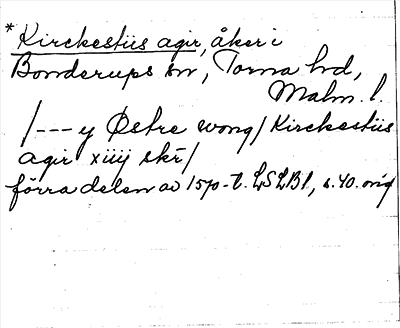 * Kirckestiis agir, åker i
Bonderups sn, Torna hd,
Malm. l.
/--- y Østre wong/ Kirckestiis
agir xiiij skr/
förra delen av 1570-t. LSLB1, s. 40. orig